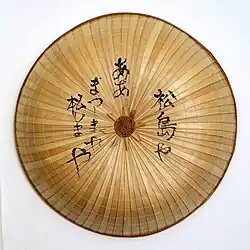 松島や
ああ
まつしまや
松しまや